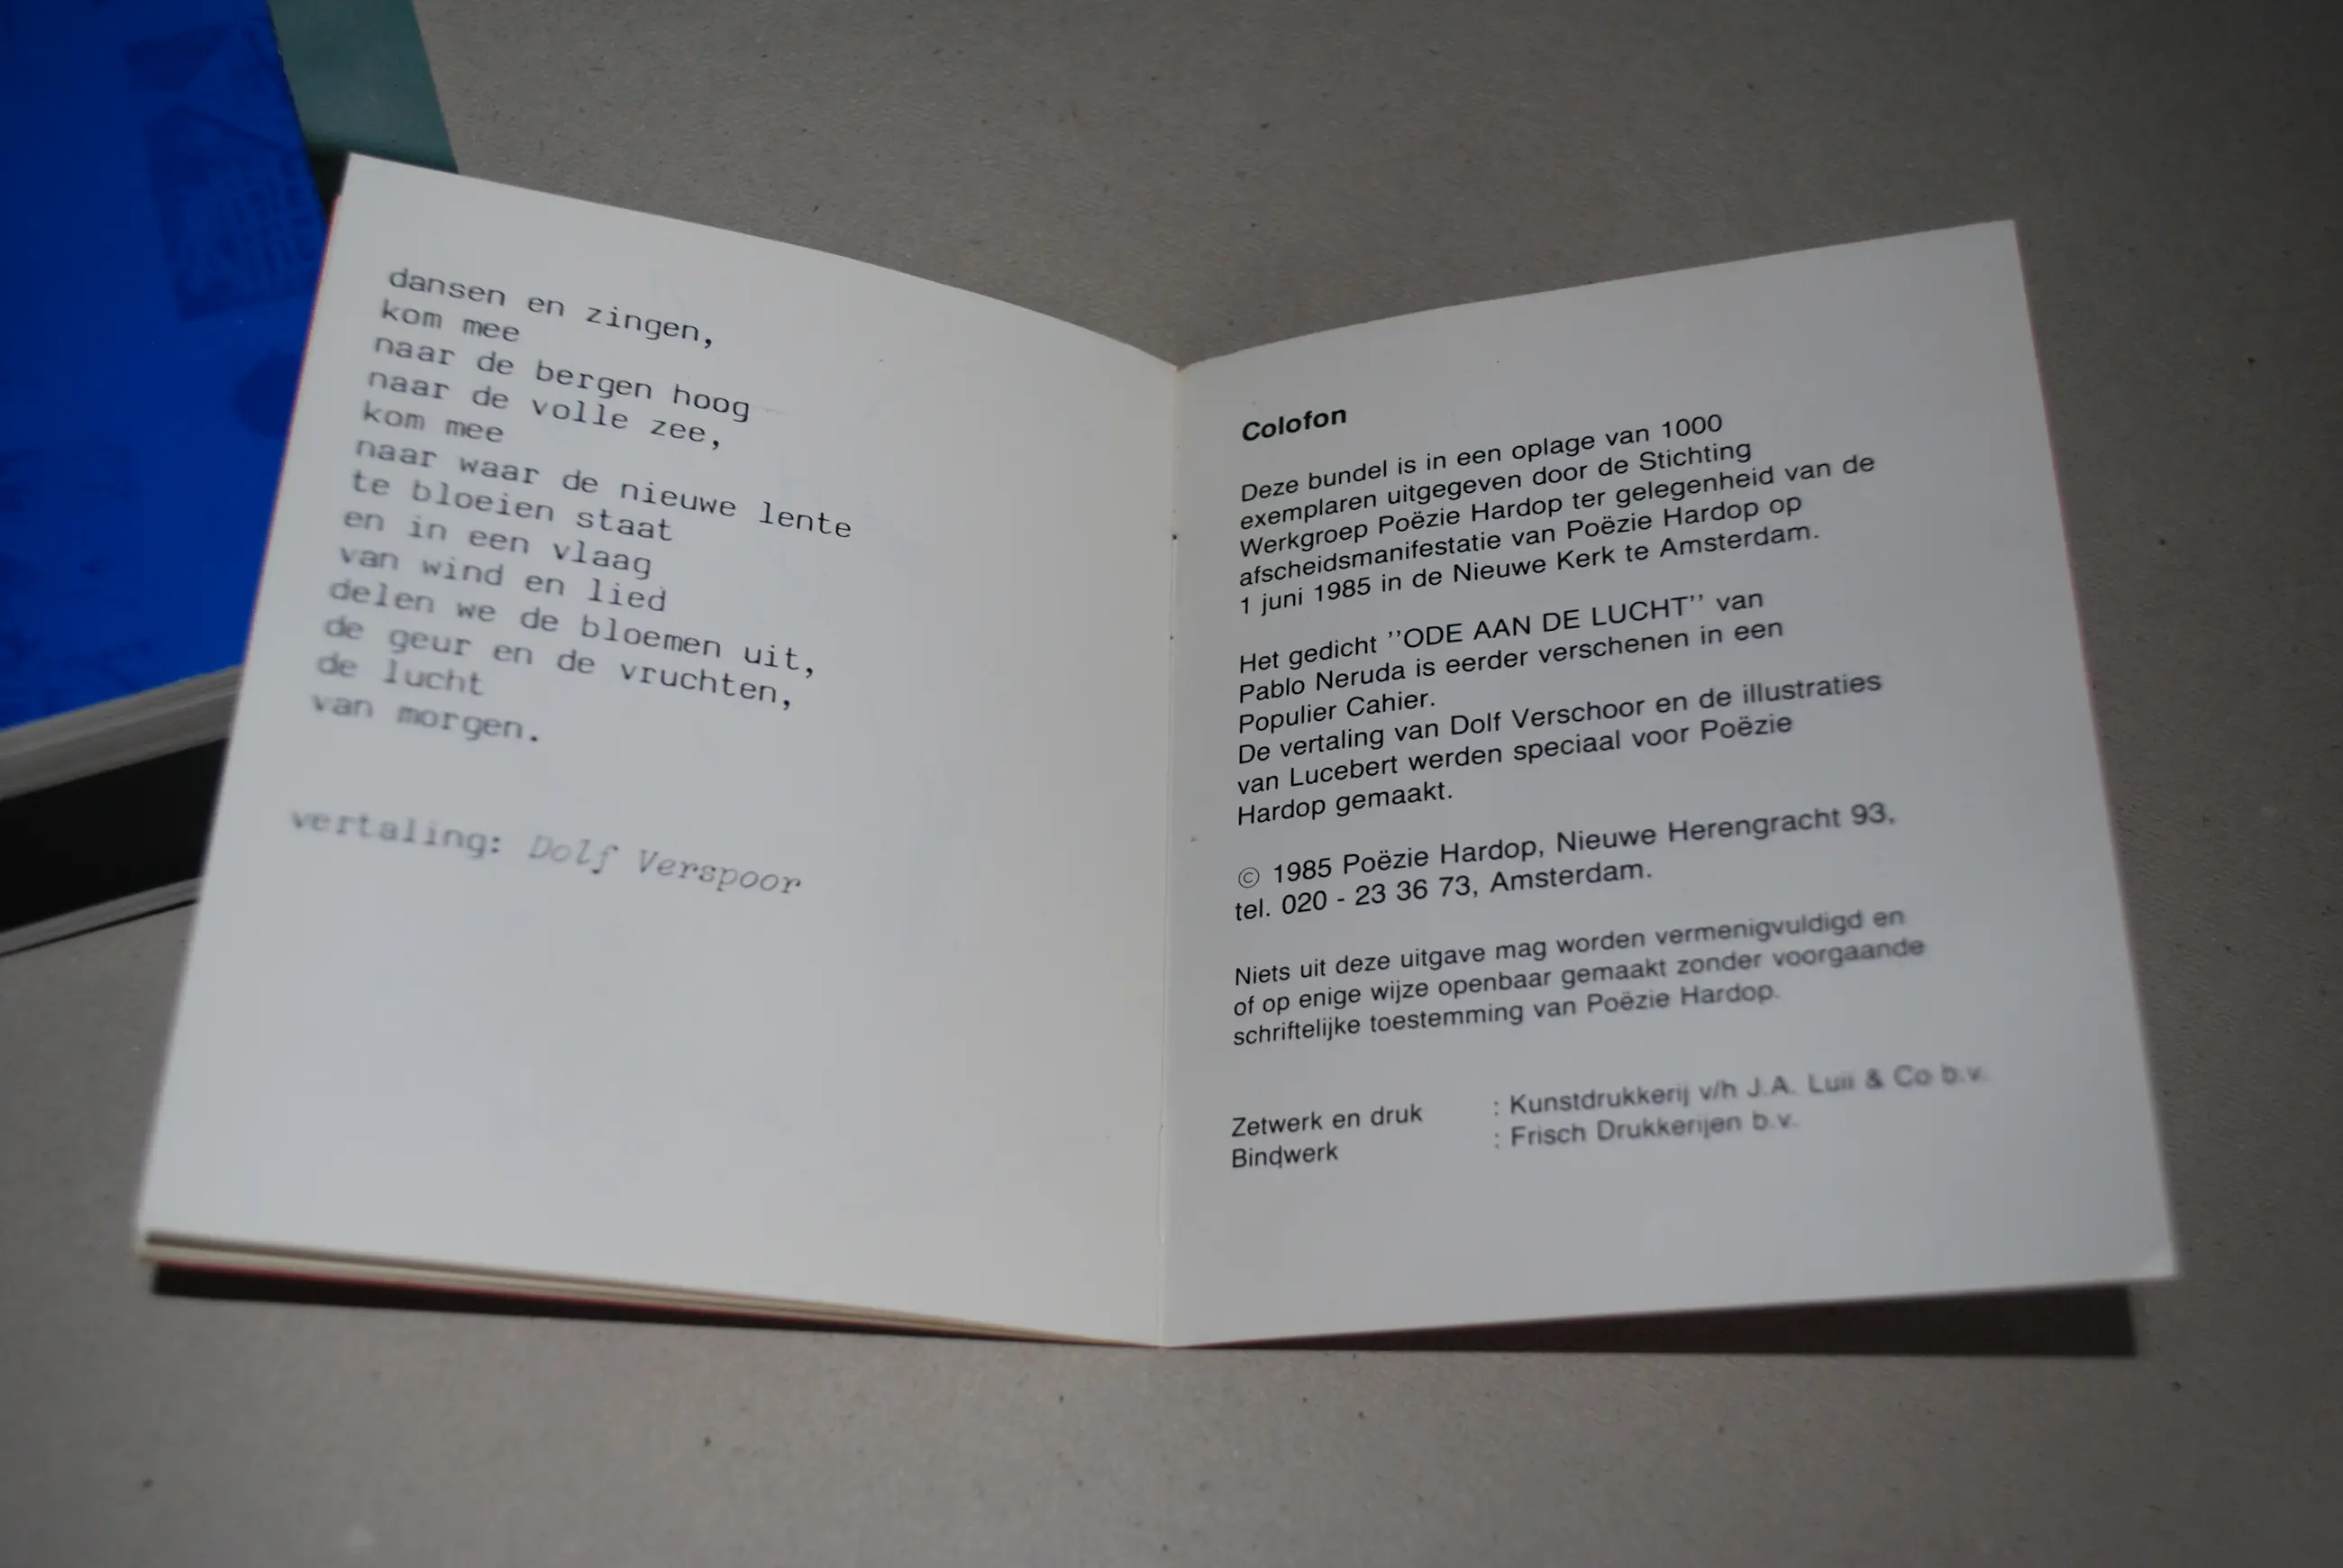 dansen en zingen,
kom mee
naar de bergen hoog
naar de volle zee,
kom mee
naar waar de nieuwe lente
te bloeien staat
en in een vlaag
van wind en lied
delen we de bloemen uit,
de geur en de vruchten,
de lucht
van morgen.
vertaling: Dolf Verspoor
Colofon
Deze bundel is in een oplage van 1000
exemplaren uitgegeven door de Stichting
Werkgroep Poëzie Hardop ter gelegenheid van de
afscheidsmanifestatie van Poëzie Hardop op
1 juni 1985 in de Nieuwe Kerk te Amsterdam.
Het gedicht ''ODE AAN DE LUCHT'' van
Pablo Neruda is eerder verschenen in een
Populier Cahier.
De vertaling van Dolf Verschoor en de illustraties
van Lucebert werden speciaal voor Poëzie
Hardop gemaakt.
© 1985 Poëzie Hardop, Nieuwe Herengracht 93,
tel. 020 - 23 36 73, Amsterdam.
Niets uit deze uitgave mag worden vermenigvuldigd en
of op enige wijze openbaar gemaakt zonder voorgaande
schriftelijke toestemming van Poëzie Hardop.
Zetwerk en druk : Kunstdrukkerij v/h J.A. & Co b.v.
Bindwerk : Frisch Drukkerijen b.v.